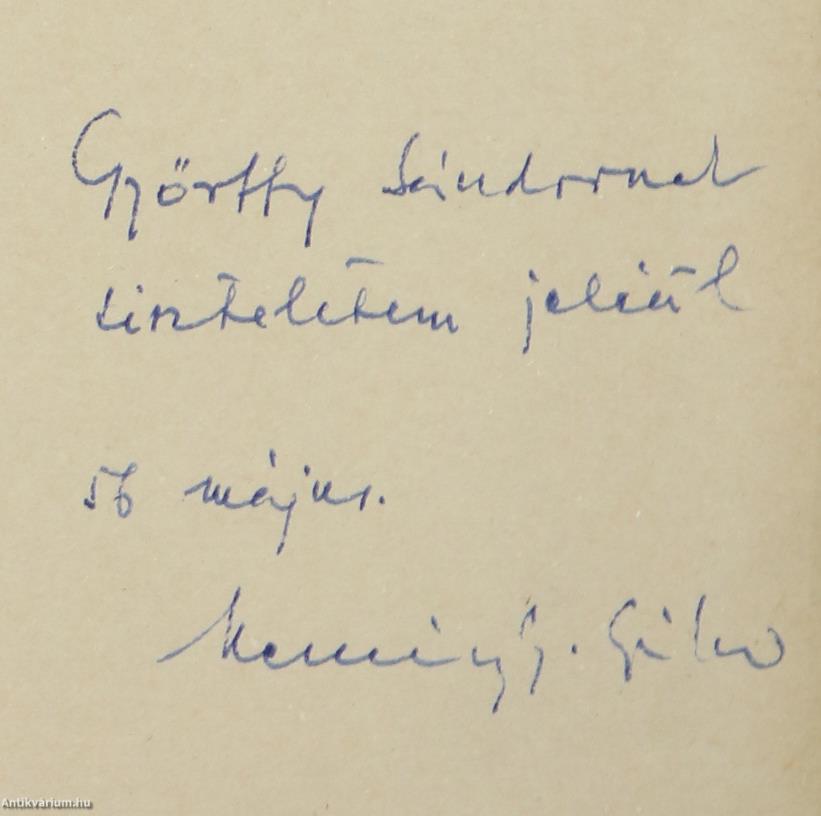 Györffy Sándornak
tiszteletem jeléül
56 május.
Keményfy
Antikvárium.hu